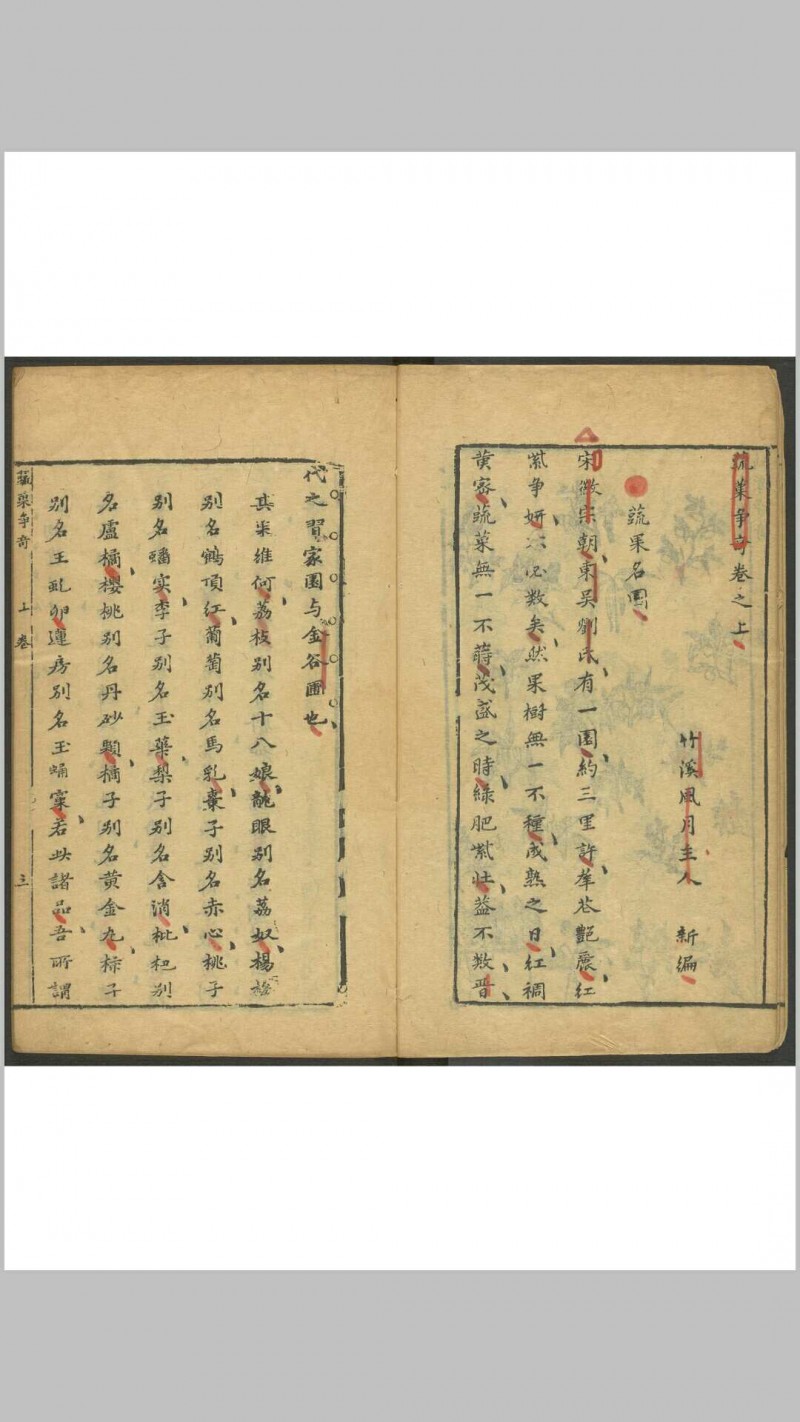 蔬菓争奇卷之上
竹溪風月主人 新編
蔬果名園
宋徽宗朝東吴劉氏有一園約三里許羣芲艶麗紅
紫争妍不必数矣然果樹無一不種成熟之日紅裯
黄密蔬菜無一不蒔茂盛之時綠肥紫壮益不数晋
代之習家園与金谷圃也
其果維何荔枝别名十八娘龍眼别名荔奴楊梅
别名鶴頂红葡萄别名馬乳棗子别名赤心桃子
别名蟠实李子别名玉葉梨子别名含消枇杷别
名盧橘樱桃别名丹砂顆橘子别名黄金丸柿子
别名王虬卵蓮房别名玉蛹窠若此諸品吾所謂
蔬菓争奇 上卷 三